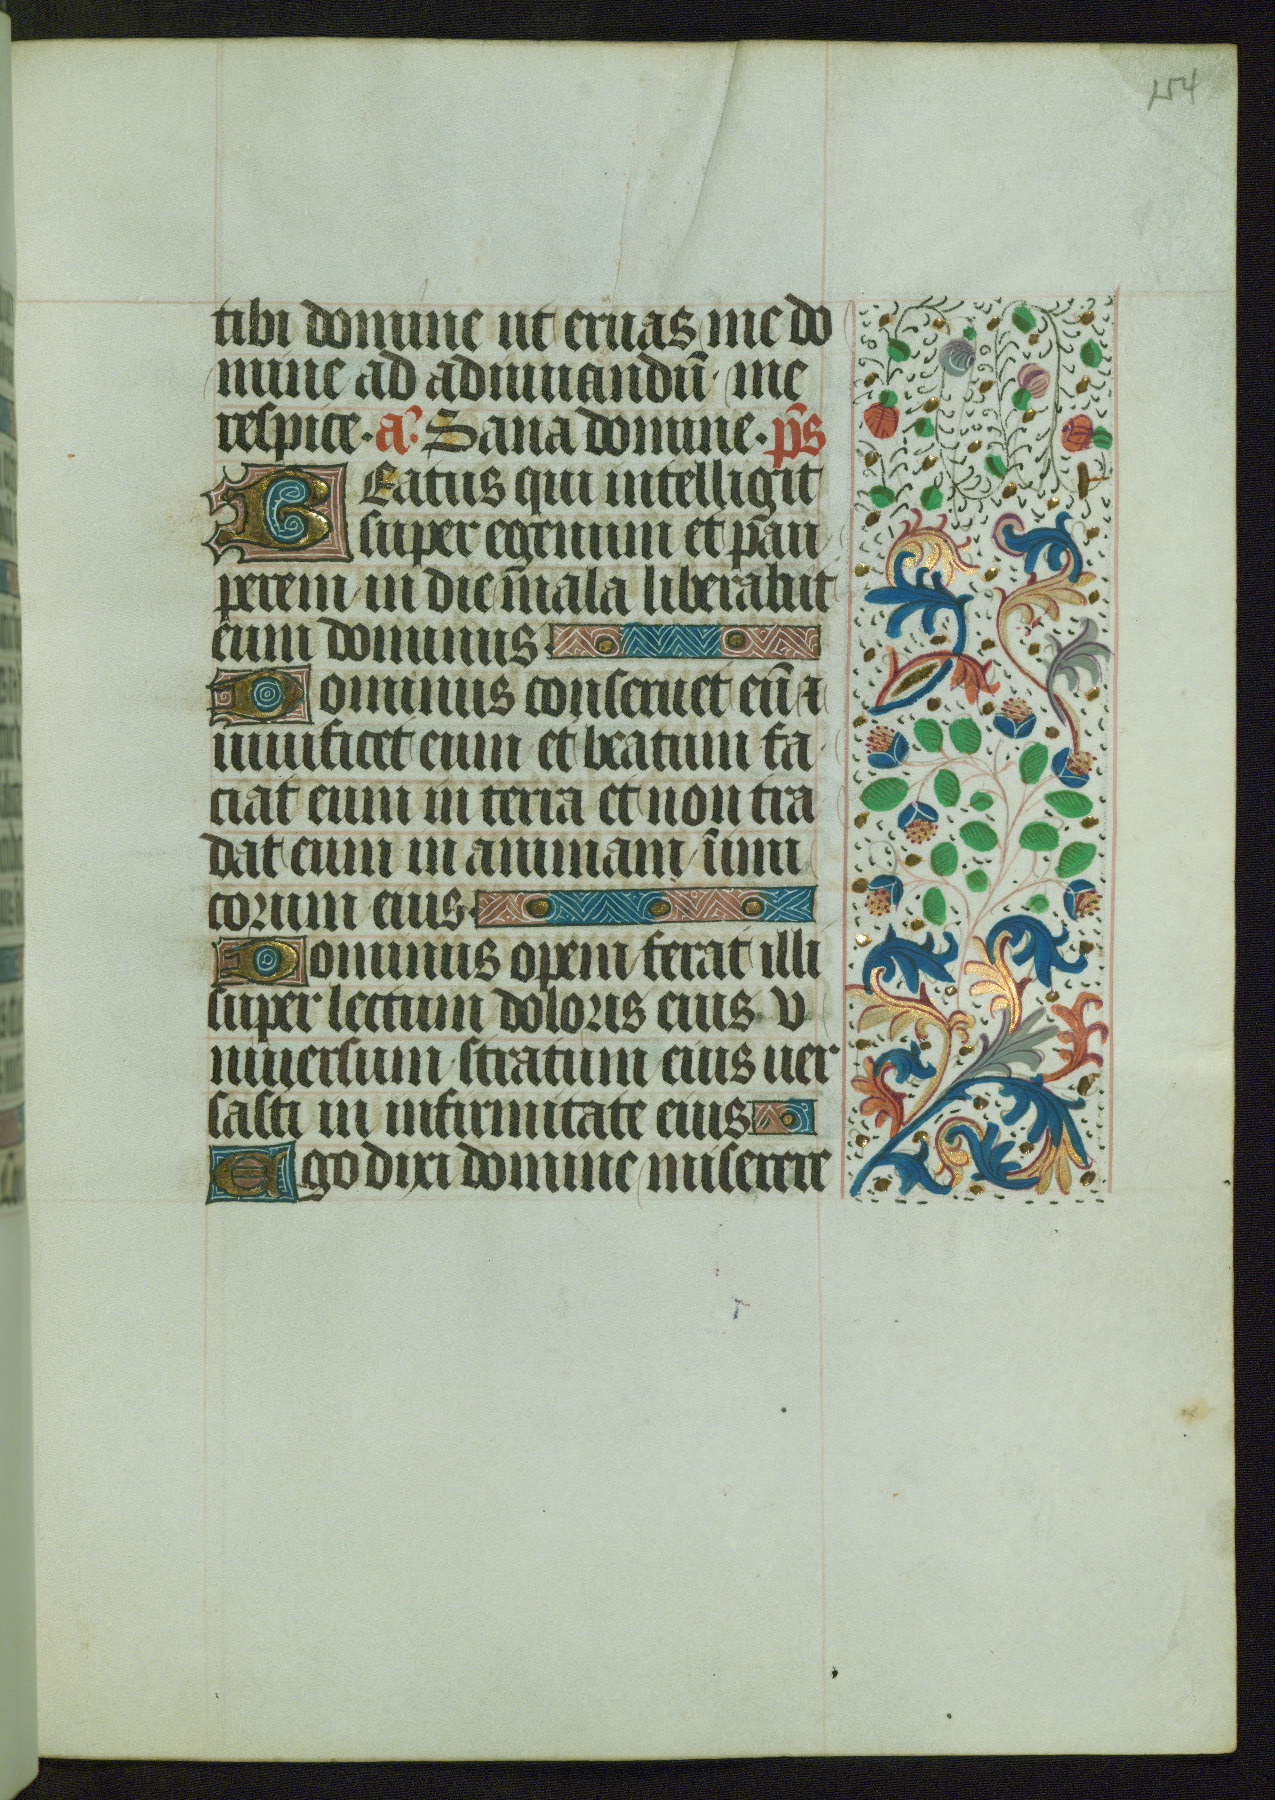 154
tibi domine ut eruas me do
mine ad adiuuandū· me
respice· a᷒: Sana domine· p̄s
Eatus qui intelligit
super egenum et pau
perem in die mala liberabit
eum dominus
Dominus conseruet eū ⁊
uiuificet eum et beatum fa
ciat eum in terra et non tra
dat eum in animam inimi
corum eius·
Dominus opem ferat illi
super lectum doloris eius V
niuersum stratum eius uer
sasti in infirmitate eius
Ego dixi domine miserere